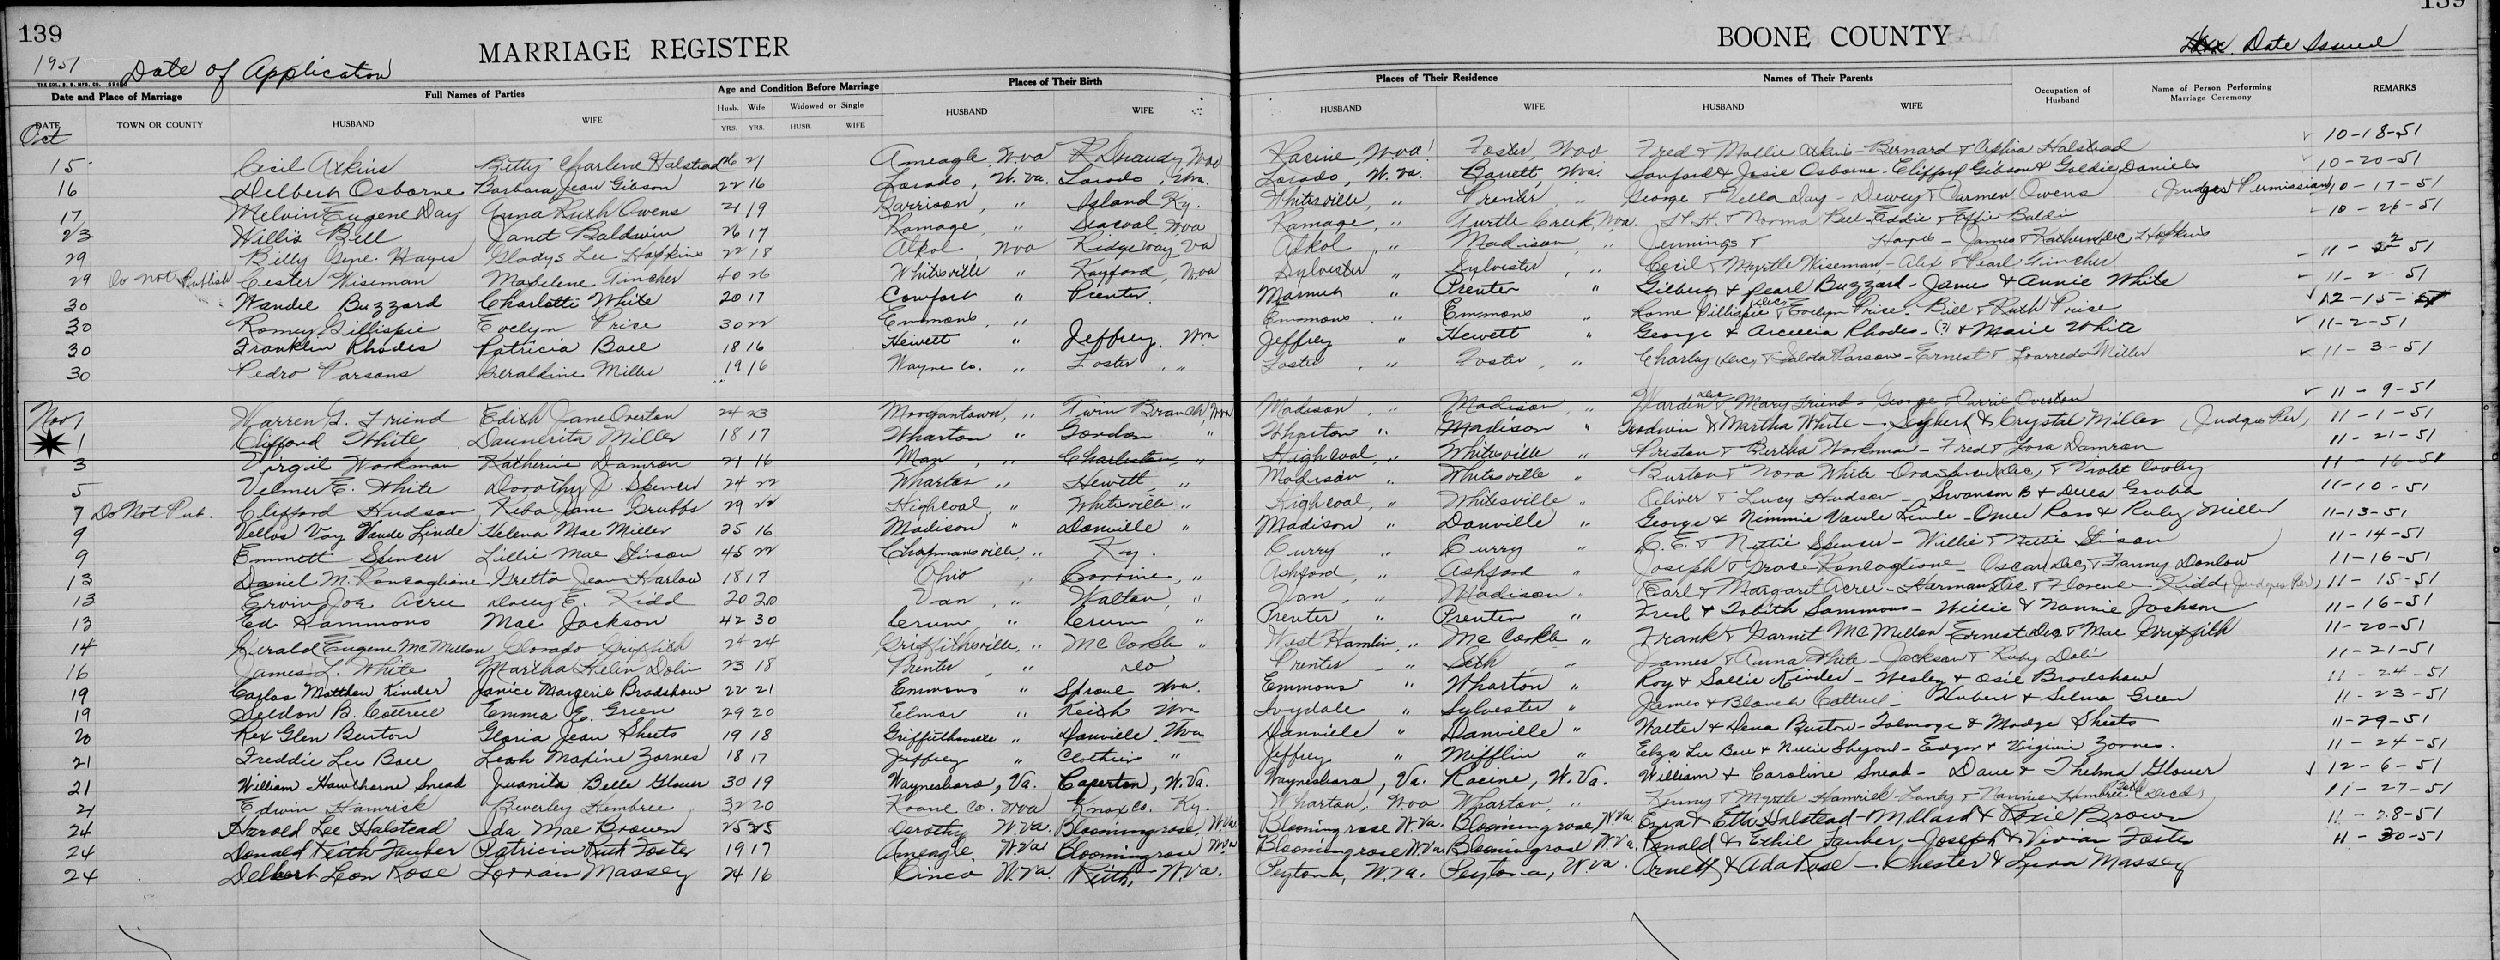 139
139
MARRIAGE REGISTER
BOONE COUNTY
1951 Date of Application
Date Issued
Date and Place of Marriage Full Names of Parties Age and Condition Before Marriage Places of Their Birth Places of Their Residence Names of Their Parents Occupation of Husband Name of Person Performing Marriage Ceremony REMARKS
Husb. Wife Widowed or Single
DATE TOWN OR COUNTY HUSBAND WIFE YRS. YRS. HUSB. WIFE HUSBAND WIFE HUSBAND WIFE HUSBAND WIFE
Oct
15 Cecil Atkins Betty Charlene Halstead 26 21 Ameagle, W.Va Racine, W.Va. Foster, W.Va Fred & Mollie Atkins - Bernard & Halstead 10-18-51
16 Delbert Osborne Barbara Jean Gibson 22 16 Lorado, W.Va. Lorado, W.Va. Lorado, W.Va. Barrett, W.Va. Sanford & Josie Osborne - Clifford Gibson & Goldie Daniels 10-20-51
17 Melvin Eugene Day Anna Ruth Owens 21 19 Garrison, " Island Ky. Whitesville, " Prenter, " George & Della Day - Dewey & Carmen Owens (Judges Permission) 10-17-51
23 Willis Bell Janet Baldwin 26 17 Ramage, " Seacoal, W.Va Ramage, " Turtle Creek, W.Va. & Norma Bell - Addie & Effie Baldwin 10-26-51
29 Billy Gene Hayes Gladys Lee Hopkins 22 18 Atkol, W.Va Ridgeway Va Atkol, " Madison, " Jennings & Hayes - James & Katherine Dec Hopkins
29 Do not Publish Lester Wiseman Madelene Tincher 40 26 Whitesville " Kayford, W.Va Sylvester " Sylvester, " Cecil & Myrtle Wiseman - Alex & Pearl Tincher 11-2-51
30 Wandel Buzzard Charlotte White 20 17 Comfort " Prenter, Marmet " Prenter " Gilbert & Pearl Buzzard - Jame & Annie White 11-2 51
30 Romey Gillispie Evelyn Price 30 22 Emmons, " Emmons " Emmons " Rome Gillispie & Evelyn Price - Bill & Ruth Price 12-15-51
30 Franklin Rhodes Patricia Ball 18 16 Hewett " Jeffrey, W.Va Jeffrey " Hewett " George & Rhodes - (?) & Marie White 11-2-51
30 Pedro Parsons Geraldine Miller 19 16 Wayne Co. " Foster, " Foster, " Foster, " Charley Dec, & Parsons - Ernest & Miller 11-3-51
Nov 1 Warren G. Friend Edith Jane Overton 24 23 Morgantown, " Turn Branch, W.Va Madison, " Madison, " Harden Dec & Mary Friend - George & Carrie Overton 11-9-51
1 Clifford White Daunerita Miller 18 17 Wharton " Gordon " Wharton " Madison " Goodwin & Martha White - Seybert & Crystal Miller (Judges Per) 11-1-51
3 Virgil Workman Katherine Damron 21 16 Man, " Charleston, " Highcoal, " Whitesville " Preston & Bertha Workman - Fred & Damron 11-21-51
5 Velmer E. White Dorothy J. Spencer 24 22 Wharton " Hewett, " Madison " Whitesville " Burton & Nora White - Spencer Dec, & Violet Cooley 11-16-51
7 Do Not Pub. Clifford Hudson Reba Jane Grubbs 29 22 Highcoal, " Whitesville " Highcoal, " Whitesville " Oliver & Lucy Hudson - Swanson B & Della Grubb 11-10-51
9 Vellos Voy Vande Linde Helena Mae Miller 25 16 Madison " Danville " Madison " Danville " George & Nimmie Vande Linde - Omer Ross & Ruby Miller 11-13-51
9 Emmett Spencer Lillie Mae Stinson 45 22 Chapmansville, " Ky. Curry " Curry " C. E. & Nettie Spencer - Willie & Nettie Stinson 11-14-51
13 Daniel M. Roncaglione Gretta Jean Harlow 18 17 Ohio " Corrine, " Ashford, " Ashford " Joseph & Grace Roncaglione - Oscar Dec, & Fanny Donlow 11-16-51
13 Ervin Joe Acree Dolly E. Kidd 20 20 Van, " Walton, " Van, " Madison " Earl & Margaret Acree - Herman Dec & Florence Kidd (Judges Per) 11-15-51
13 Ed Sammons Mae Jackson 42 30 Crum " Crum " Prenter " Prenter " Fred & Tobith Sammons - Willie & Nannie Jackson 11-16-51
14 Gerald Eugene McMellon Dorado Griffith 24 24 Griffithsville, " McCorkle " West Hamlin, " McCorkle " Frank & Garnet McMellon - Ernest Dec & Mae Griffith 11-20-51
16 James L. White Martha Helen Dolin 23 18 Prenter " do Prenter " Seth " James & Anna White - Jackson & Ruby Dolin 11-21-51
19 Carlos Matthew Kinder Janice Margerie Bradshaw 22 21 Emmons " Sproul W.Va. Emmons " Wharton " Roy & Sallie Kinder - Wesley & Osie Bradshaw 11-24-51
19 Seldon B. Cottrell Emma E. Green 29 20 Elmar " Keith W.Va Ivydale " Sylvester " James & Blanch Cottrell - Hubert & Selma Green 11-23-51
20 Rex Glen Burton Gloria Jean Sheets 19 18 Griffithsville " Danville, W.Va Danville " Danville " Walter & Dena Burton - Talmage & Madge Sheets 11-29-51
21 Freddie Lee Ball Leah Maxine Zornes 18 17 Jeffrey " Clothier " Jeffrey " Mifflin " Elza Lee Ball & Nellie Shepard - Edgar & Virginia Zornes. 11-24-51
21 William Hawthorne Snead Juanita Belle Glover 30 19 Waynesboro, Va. Caperton, W.Va. Waynesboro, Va. Racine, W.Va. William & Caroline Snead - Dave & Thelma Glover 12-6-51
21 Edwin Hamrick Beverley Hembree 32 20 Roane Co. W.Va Knox Co. Ky. Wharton, W.Va Wharton, " & Myrtle Hamrick - & Nannie Hembree (Both Decd) 11-27-51
24 Harold Lee Halstead Ida Mae Brown 25 25 Dorothy W.Va. Bloomingrose, W.Va Bloomingrose W.Va. Bloomingrose, W.Va. Ezra & Etta Halstead - Millard & Rosie Brown 11-28-51
24 Donald Keith Tauber Patricia Ruth Foster 19 17 Ameagle, W.Va Bloomingrose W.Va Bloomingrose W.Va. Bloomingrose W.Va. Ronald & Ethil Tauber - Joseph & Vivian Foster 11-30-51
24 Delbert Leon Rose Lorrain Massey 24 16 Cinco W.Va. Keith, W.Va. Peytona, W.Va. Peytona, W.Va. Arnett & Ada Rose - Chester & Massey